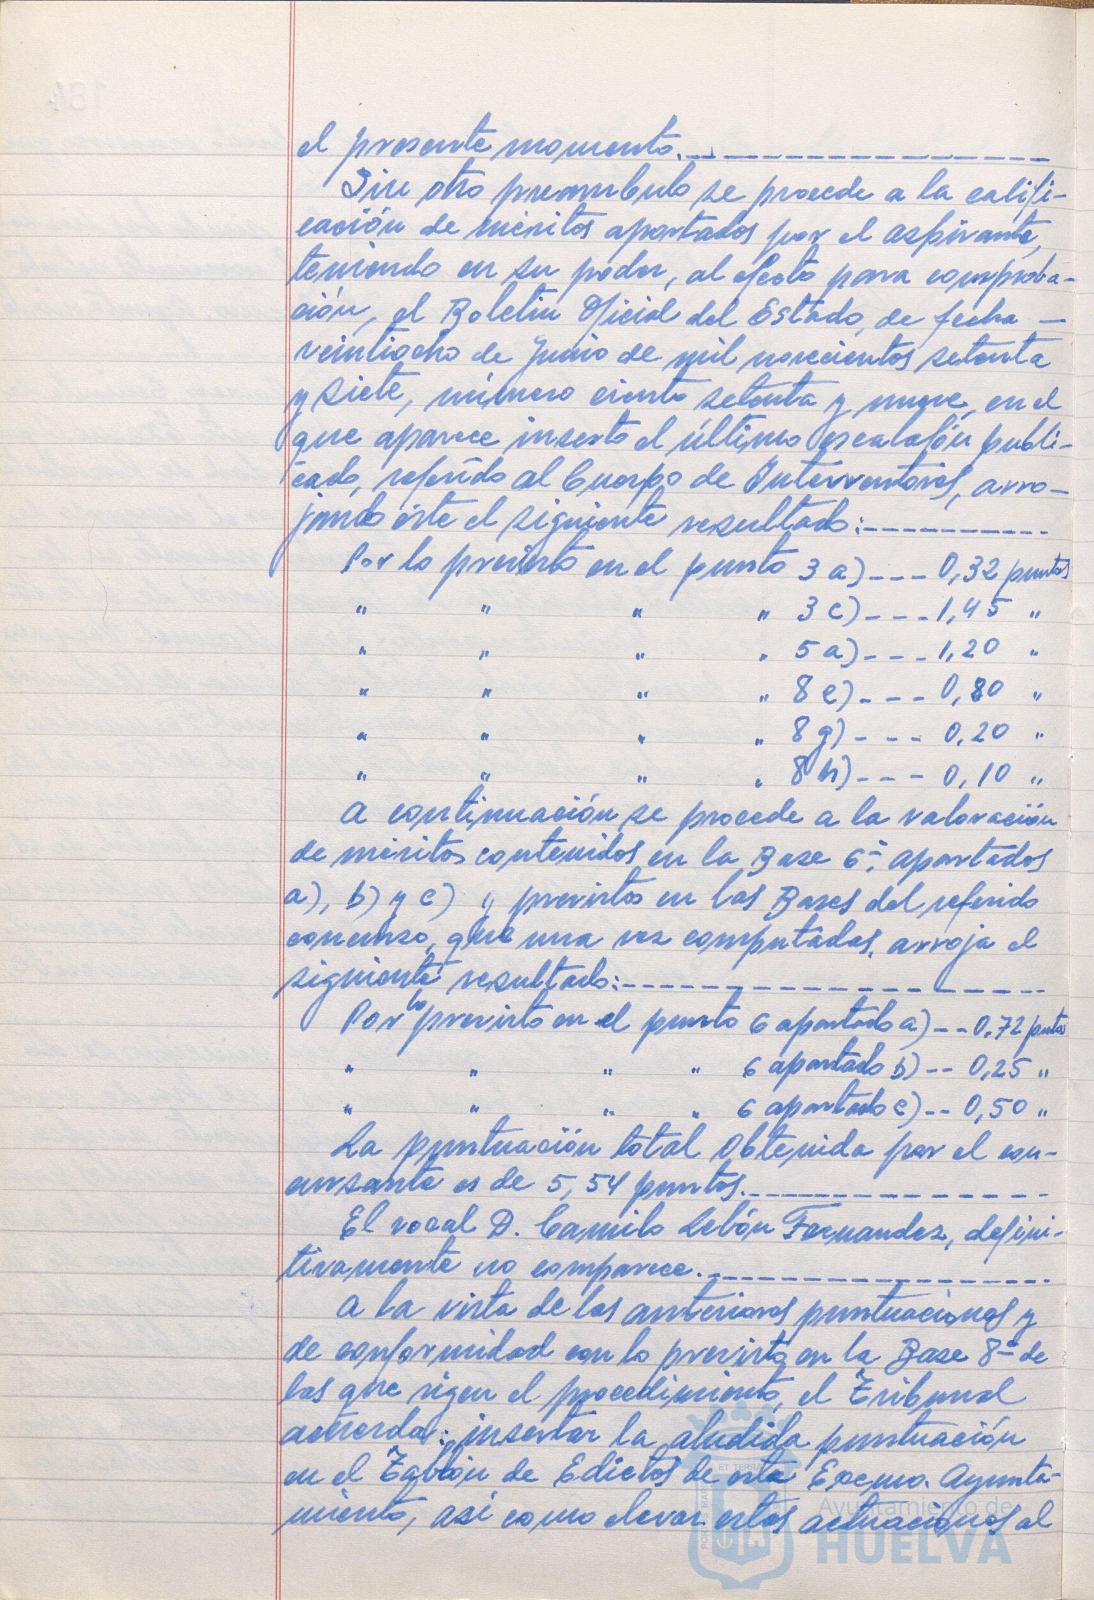 el presente momento.
Sin otro preambulo se procede a la califi-
cación de méritos aportados por el aspirante,
teniendo en su poder, al efecto para comproba-
ción, el Boletin Oficial del Estado, de fecha —
veintiocho de Junio de mil novecientos setenta
y siete, número ciento setenta y nueve, en el
que aparece inserto el último escalafón publi-
cado, referido al Cuerpo de Interventores, arro-
jando éste el siguiente resultado:
Por lo previsto en el punto 3 a)--- 0,32 puntos
" " " " 3 c)--- 1,45 "
" " " " 5 a)--- 1,20 "
" " " " 8 e)--- 0,80 "
" " " " 8 g)--- 0,20 "
" " " " 8 h)--- 0,10 "
A continuación se procede a la valoración
de méritos contenidos en la Base 6ª, apartados
a), b) y c) y previstos en las Bases del referido
concurso, que una vez computadas, arroja el
siguiente resultado:
Por lo previsto en el punto 6 apartado a)-- 0,72 puntos
" " " " 6 apartado b)-- 0,25 "
" " " " 6 apartado c)-- 0,50 "
La puntuación total obtenida por el con-
cursante es de 5,54 puntos.
El vocal D. Camilo Lebón Fernandez, defini-
tivamente no comparece.
A la vista de las anteriores puntuaciones y
de conformidad con lo previsto en la Base 8ª de
las que rigen el procedimiento, el Tribunal
acuerda: insertar la aludida puntuación
en el Tablón de Edictos de este Excmo. Ayunta-
miento, asi como elevar estas actuaciones al
Ayuntamiento de
HUELVA